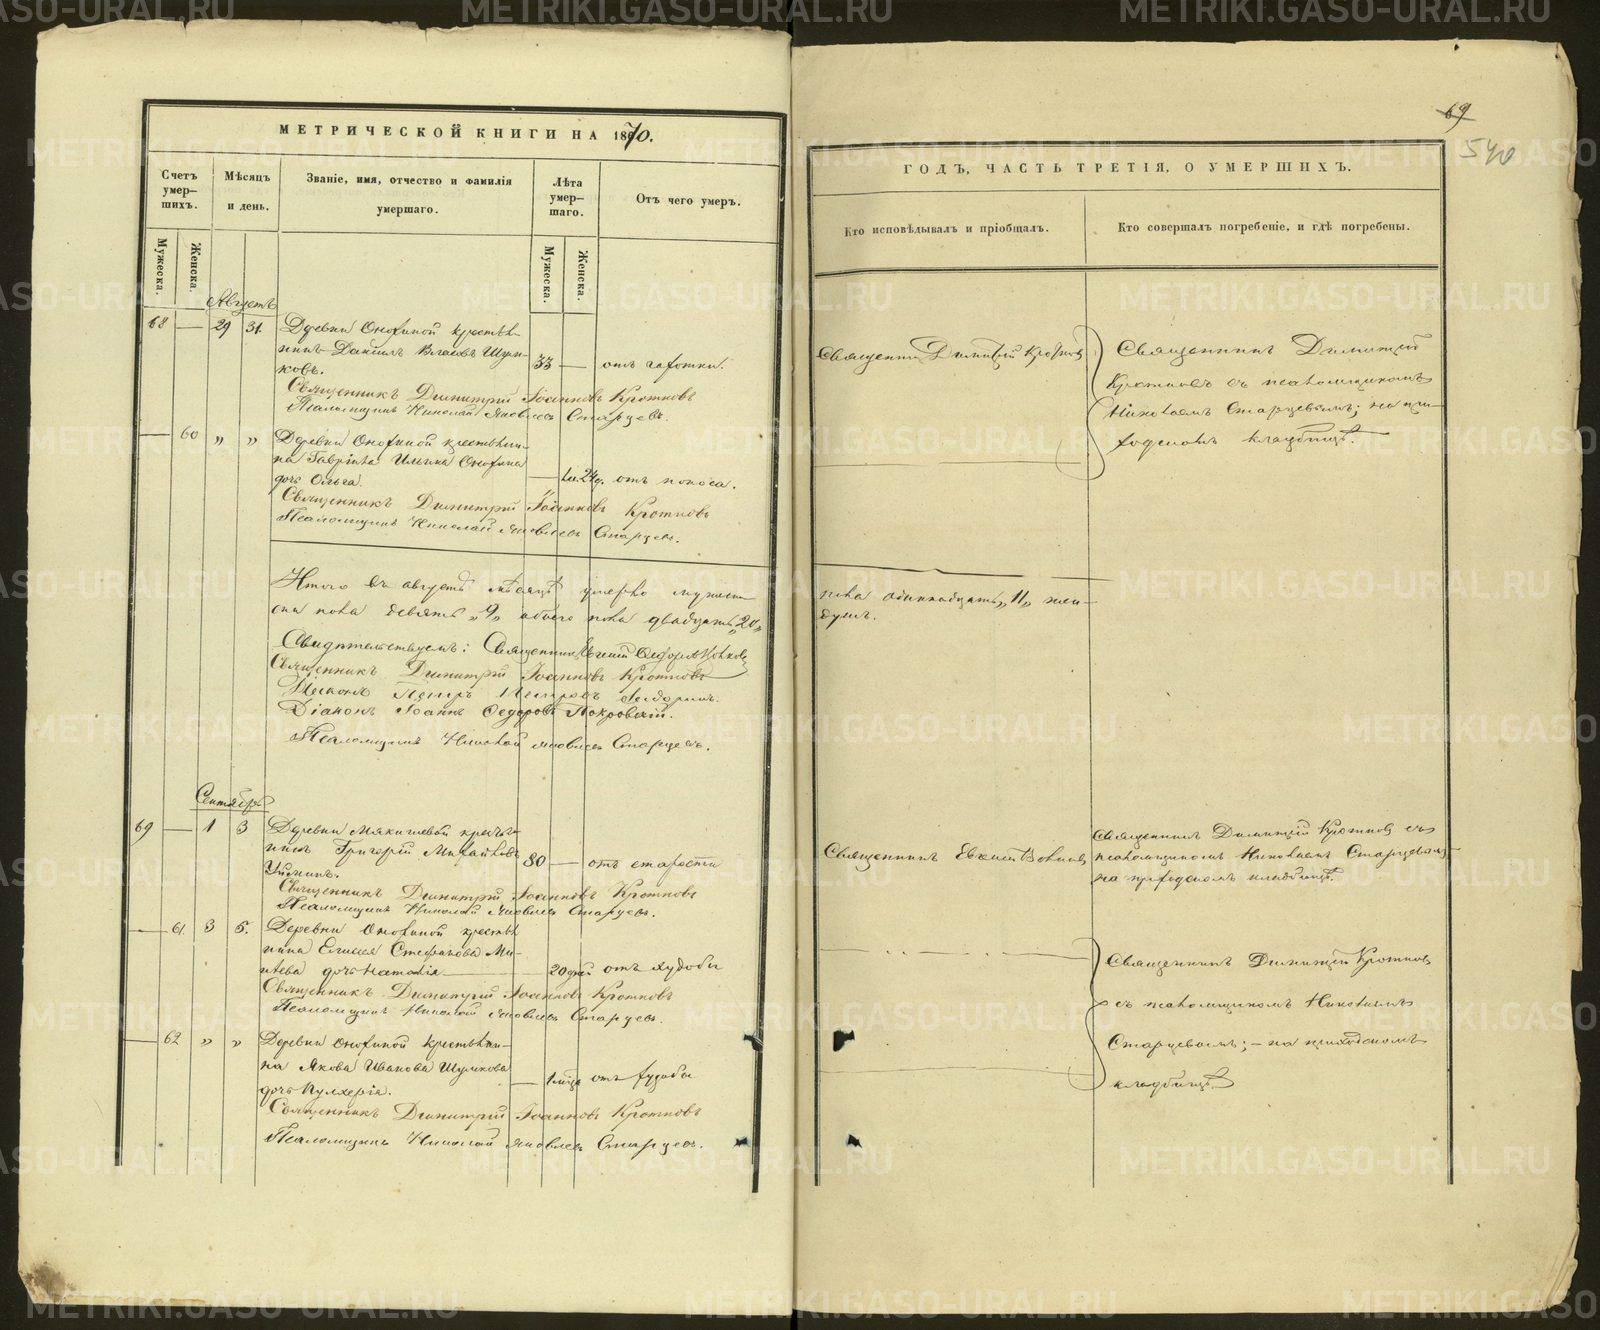 МЕТРИЧЕСКОЙ КНИГИ НА 1870.
Счетъ умер-
шихъ.
Мѣсяцъ
и день.
Званіе, имя, отчество и фамилія
умершаго.
Лѣта
умер-
шаго.
Отъ чего умеръ.
Мужеска.
Женска.
Мужеска.
Женска.
Августъ
68 — 29 31. Деревни Онохиной крестья-
нинъ Даніилъ Власовъ Шуми-
ковъ. 33 — отъ чахотки.
Священникъ Димитрій Іоанновъ Кротковъ
Псаломщикъ Николай Яковлевъ Старцевъ.
— 60 „ „ Деревни Онохиной крестьяни-
на Гавріила Ильина Онохина
дочь Ольга. — 1м.24д. отъ поноса.
Священникъ Димитрій Іоанновъ Кротковъ
Псаломщикъ Николай Яковлевъ Старцевъ.
Итого въ августѣ мѣсяцѣ умерло мужес-
ка пола девять „9„ обоего пола двадцать „20„
Свидѣтельствуемъ: Священникъ Евгений
Священникъ Димитрій Іоанновъ Кротковъ
Петръ Петровъ
Діаконъ Іоаннъ Федоровъ Покровскій.
Псаломщикъ Николай Яковлевъ Старцевъ.
Сентябрь
69 — 1 3 Деревни Мякишевой кресть-
нинъ Григорій Михайловъ
80 — отъ старости
Священникъ Димитрій Іоанновъ Кротковъ
Псаломщикъ Николай Яковлевъ Старцевъ.
— 61. 3 5. Деревни Онохиной крестья
нина Елисея Стефанова Ми-
дочь Наталія — 20 дней отъ худобы
Священникъ Димитрій Іоанновъ Кротковъ
Псаломщикъ Николай Яковлевъ Старцевъ.
— 62 „ „ Деревни Онохиной крестьяни-
на Якова Иванова Шумкова
дочь Пулхерія. — 1 мѣсца отъ худобы
Священникъ Димитрій Іоанновъ Кротковъ
Псаломщикъ Николай Яковлевъ Старцевъ.
69
540
ГОДЪ, ЧАСТЬ ТРЕТІЯ, О УМЕРШИХЪ.
Кто исповѣдывалъ и пріобщалъ.
Кто совершалъ погребеніе, и гдѣ погребены.
Священникъ Димитрій Кротковъ
Священникъ Димитрій
Кротковъ съ псаломщикомъ
Николаемъ Старцевымъ; на при-
ходскомъ кладбищѣ.
пола одиннадцать „11„ жен-
душъ.
Священникъ Евгений
Священникъ Димитрій Кротковъ съ
псаломщикомъ Николаемъ Старцевымъ
на приходскомъ кладбищѣ.
Священникъ Димитрій Кротковъ
съ псаломщикомъ Николаемъ
Старцевымъ; — на приходскомъ
кладбищѣ.
METRIKI.GASO-URAL.RU